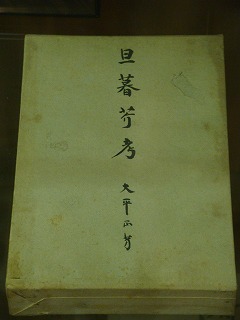 旦暮芥考
大平正芳